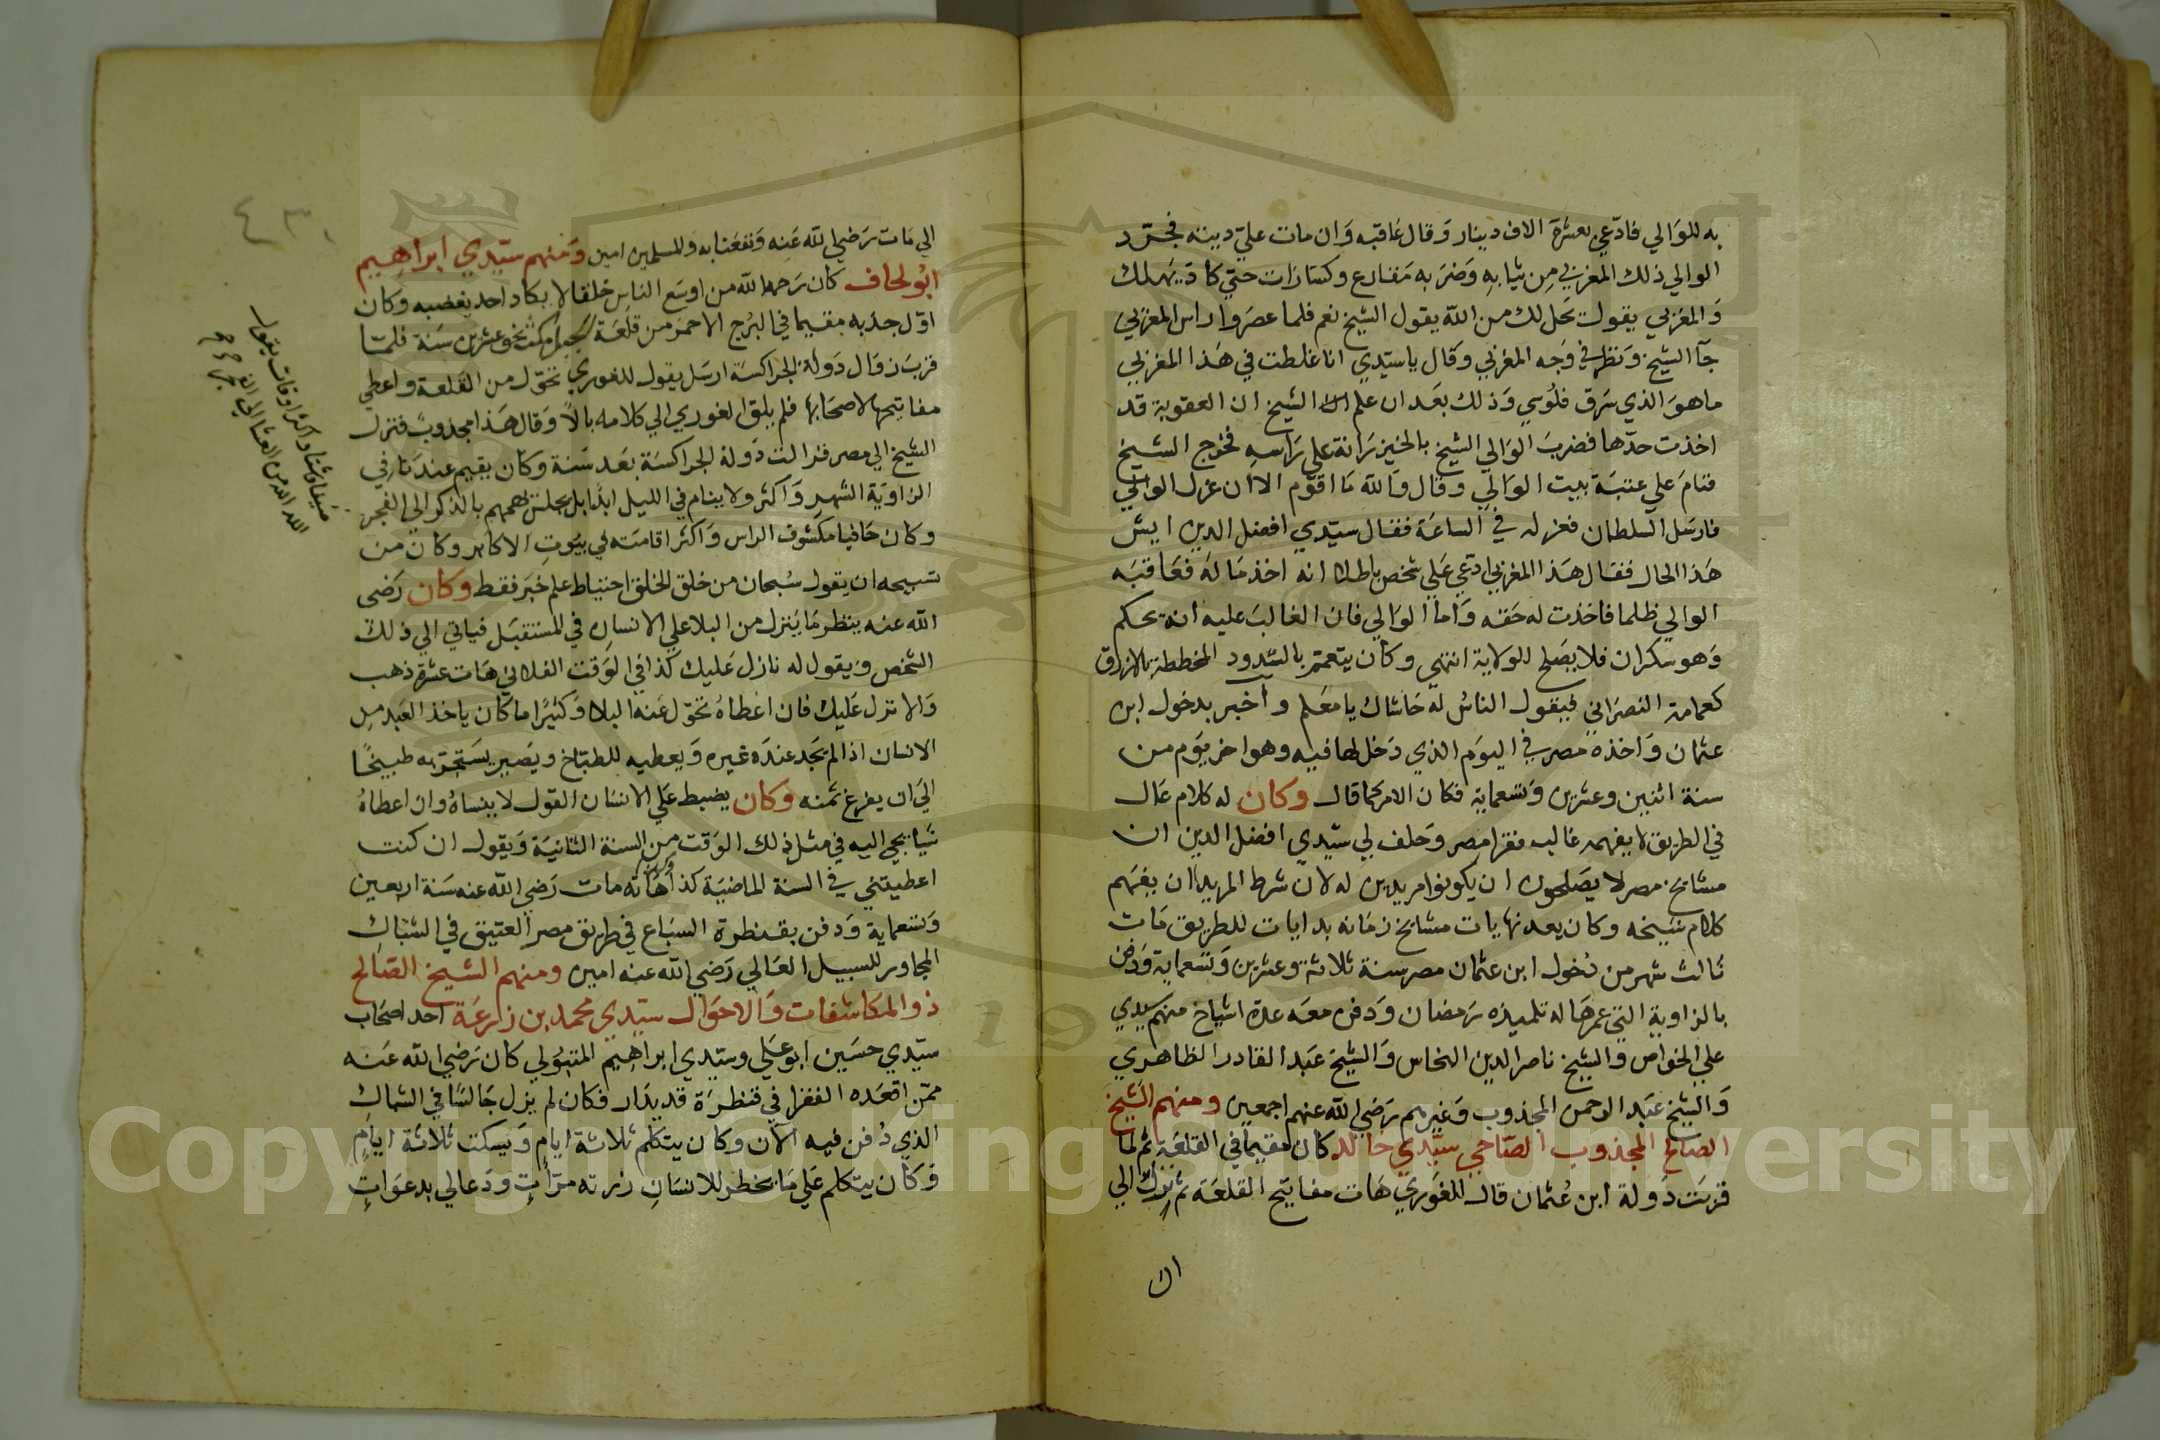 به للوالي فادعي بعشرة الاف دينار وقال عاقبه وان مات علي ديته فجرد
الوالي ذلك المغربي من ثيابه وضربه مقارع وكسارات حتي كاد يهلك
والمغربي يقول تحل لك من الله يقول الشيخ نعم فلما عصروا راس المغربي
جآ الشيخ ونظر في وجه المغربي وقال يا سيدي انا غلطت في هذا المغربي
ما هو الذي سرق فلوسي وذلك بعد ان علم الشيخ ان العقوبة قد
اخذت حدها فضرب الوالي الشيخ بالخيزرانة علي راسه فخرج الشيخ
فنام علي عتبة بيت الوالي وقال والله ما اقوم الا ان عزل الوالي
فارسل السلطان فعزله في الساعة فقال سيدي افضل الدين ايش
هذا الحال فقال هذا المغربي ادعي علي شخص باطلا انه اخذ ماله فعاقبه
الوالي ظلما فاخذت له حقه واما الوالي فان الغالب عليه انه يحكم
وهو سكران فلا يصلح للولاية انتهي وكان يتعمم بالشدود المخططة بالازرق
كعمامة النصراني فيقول الناس له حاشاك يا معلم واخبر بدخول ابن
عثمان واخذه مصر في اليوم الذي دخلها فيه وهو اخر يوم من
سنة اثنين وعشرين وتسعماية فكان الامر كما قال وكان له كلام عال
في الطريق لا يفهمه غالب فقرا مصر وحلف لي سيدي افضل الدين ان
مشايخ مصر لا يصلحون ان يكونوا مريدين له لان شرط المريد ان يفهم
كلام شيخه وكان يعد نهايات مشايخ زمانه بدايات للطريق مات
ثالث شهر من دخول ابن عثمان مصر سنة ثلاثة وعشرين وتسعماية ودفن
بالزاوية التي عمرها له تلميذه رمضان ودفن معه عدة اشياخ منهم سيدي
علي الخواص والشيخ ناصر الدين النحاس والشيخ عبد القادر الظاهري
والشيخ عبد الرحمن المجذوب وغيرهم رضي الله عنهم اجمعين ومنهم الشيخ
الصالح المجذوب الصاحي سيدي خالد كان مقيما في القلعة ثم لما
قربت دولة ابن عثمان قال للغوري هات مفاتيح القلعة ثم نزل الي
الي مات رضي الله عنه ونفعنا به والمسلمين امين ومنهم سيدي ابراهيم
ابو لحاف كان رحمه الله من اوسع الناس خلقا لا يكاد احد يغضبه وكان
اول جذبه مقيما في البرج الاحمر من قلعة الجبل مكث نحو عشرين سنة فلما
قرب زوال دولة الجراكسة ارسل يقول للغوري تحول من القلعة واعطي
مفاتيحها لاصحابها فلم يلق الغوري الي كلامه بالا وقال هذا مجذوب فنزل
الشيخ الي مصر فزالت دولة الجراكسة بعد سنة وكان يقيم عندنا في
الزاوية الشهر واكثر ولا ينام في الليل ابدا بل يجلس يهمهم بالذكر الي الفجر
وكان حافيا مكشوف الراس واكثر اقامته في بيوت الاكابر وكان من
تسبيحه ان يقول سبحان من خلق الخلق احتياط علم خبر فقط وكان رضي
الله عنه ينظر ما ينزل من البلا علي الانسان في المستقبل فياتي الي ذلك
الشخص ويقول له نازل عليك كذا في الوقت الفلاني هات عشرة ذهب
والا نزل عليك فان اعطاه تحول عنه البلا وكثيرا ما كان ياخذ العبد من
الانسان اذا لم يجد عنده غيره ويعطيه للطباخ ويصير يستجر به طبيخا
الي ان يفرغ ثمنه وكان يضبط علي الانسان القول لا ينساه وان اعطاه
شيا يجي اليه في مثل ذلك الوقت من السنة الثانية ويقول ان كنت
اعطيتني في السنة الماضية كذا هاته مات رضي الله عنه سنة اربعين
وتسعماية ودفن بقنطرة السباع في طريق مصر العتيق في الشباك
المجاور للسبيل العالي رضي الله عنه امين ومنهم الشيخ الصالح
ذو المكاشفات والاحوال سيدي محمد بن زرعة احد اصحاب
سيدي حسين ابو علي وسيدي ابراهيم المتبولي كان رضي الله عنه
ممن اقعده الفقرا في قنطرة قديدار فكان لم يزل جالسا في الشباك
الذي دفن فيه الان وكان يتكلم ثلاثة ايام ويسكت ثلاثة ايام
وكان يتكلم علي ما يخطر للانسان زرته مرات ودعا لي بدعوات
الله الله من العشا الي
Copyright © King Saud University